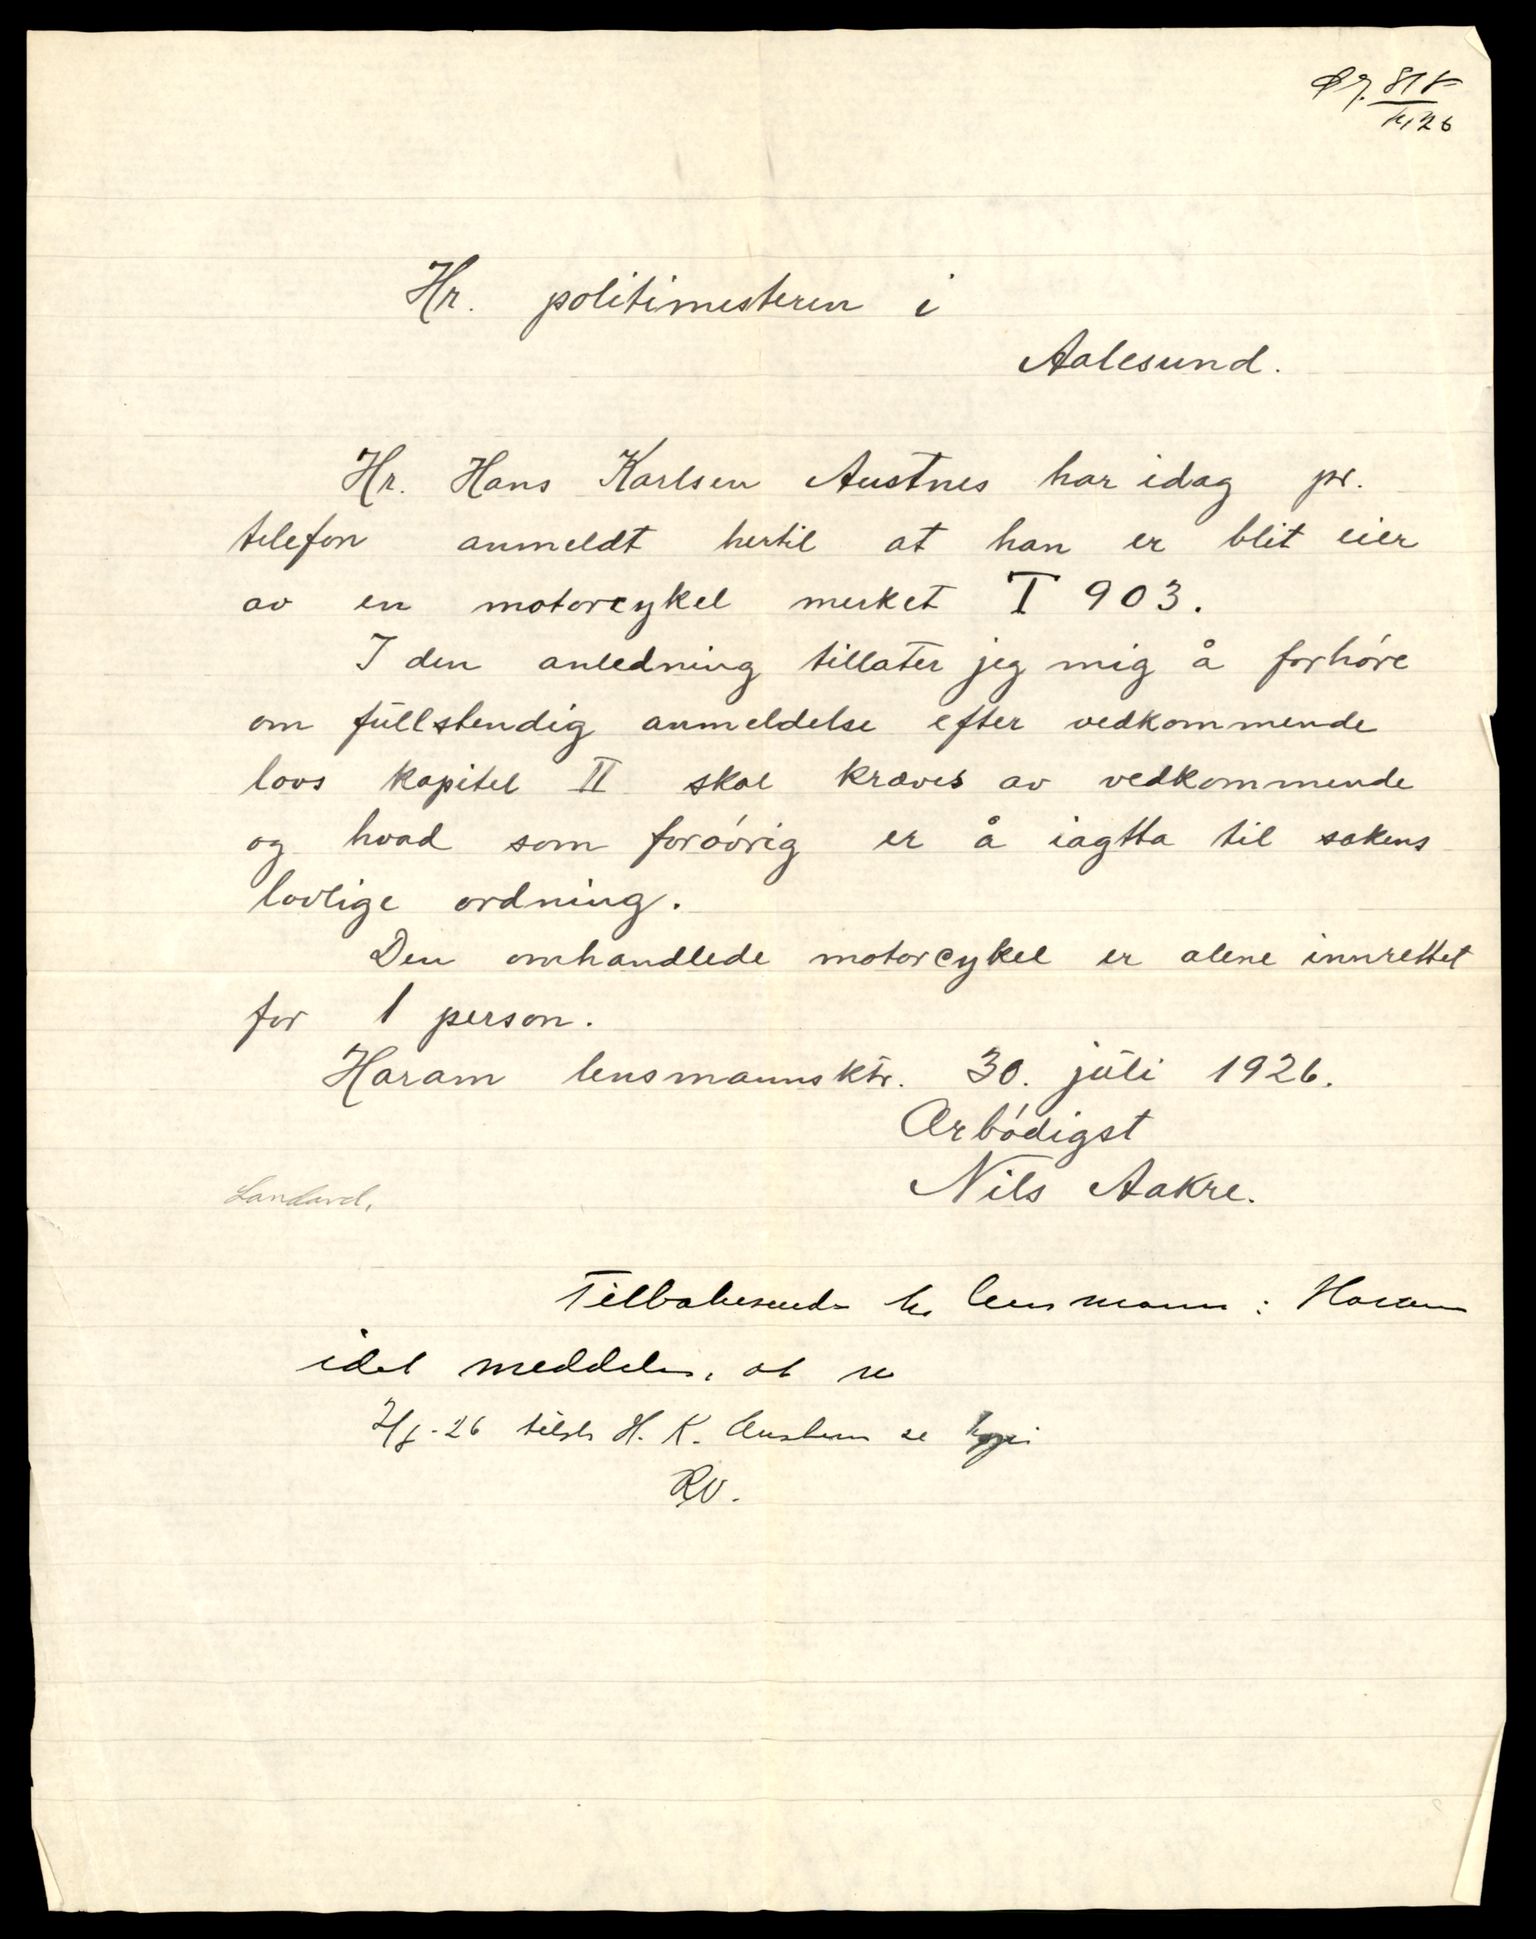 818
26
Hr. politimesteren i
Aalesund.
Hr. Hans Karlsen Austnes har idag pr.
telefon anmeldt hertil at han er blit eier
av en motorcykel merket T 903.
I den anledning tillater jeg mig å forhóre
om fullstendig anmeldelse efter vedkommende
lovs kapitel II skal kræves av vedkommende
og hvad som foróvrig er å iagtta til sakens
lovlige ordning.
Den omhandlede motorcykel er alene innrettet
for 1 person.
Haram lensmannsktr. 30. juli 1926.
Ærbódigst
Nils Aakre.
Tilbakesendes hr lensmann i Haram
idet meddeles, at
26 H. K. Austnes se kopi
RV.